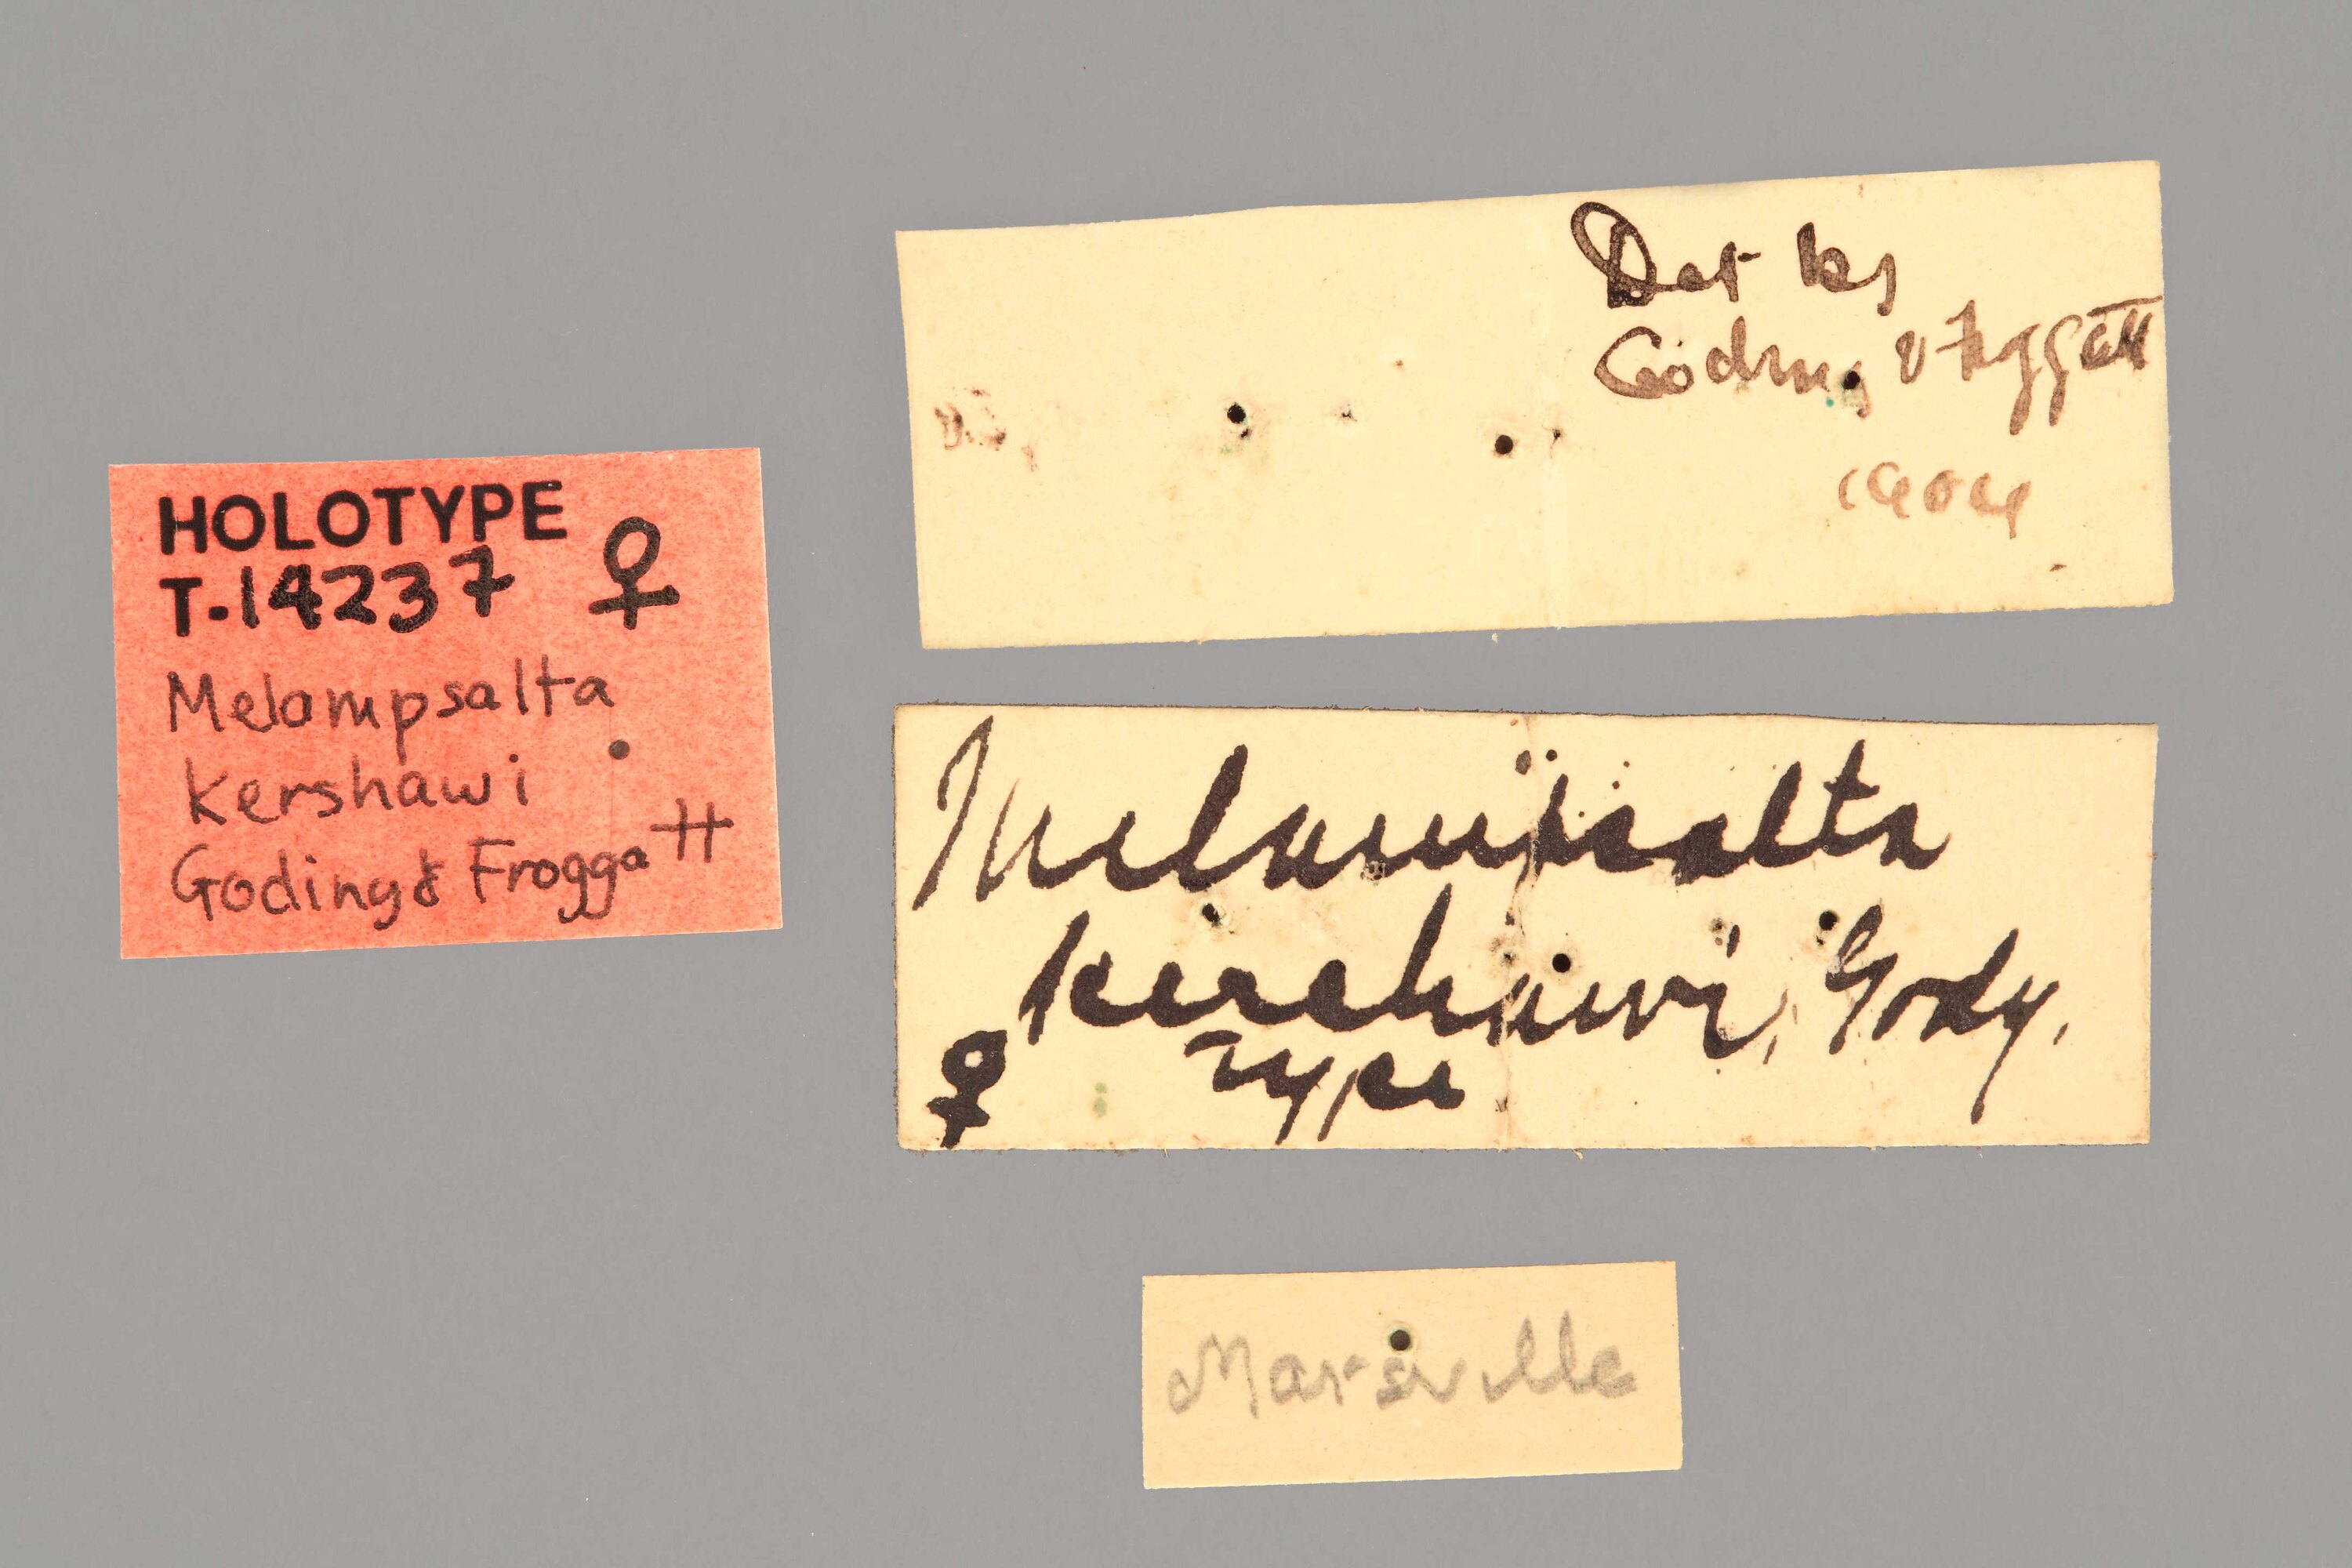 HOLOTYPE
T-14237 ♀
Melampsalta
kershawi
Goding & Froggatt
Det by
Goding & Froggatt
1904
Melampsalta
kershawi, Godg.
♀ Type
Marsville